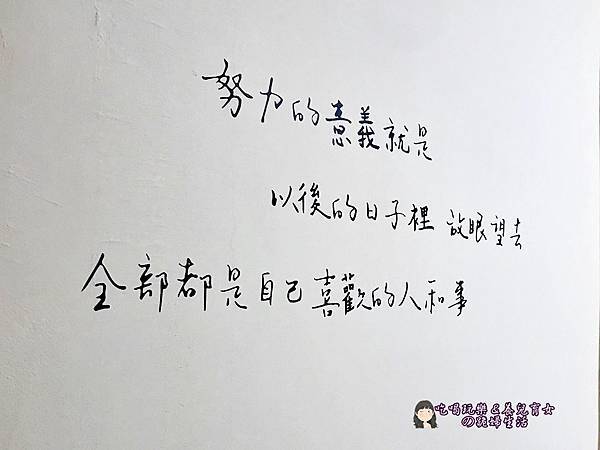 努力的意義就是
以後的日子裡 放眼望去
全部都是自己喜歡的人和事
吃喝玩樂&養兒育女
の跳婦生活